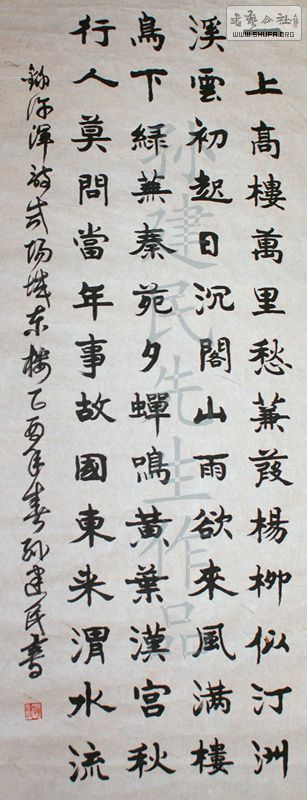 書藝公社
WWW.SHUFA.ORG
上高樓萬里愁蒹葭楊柳似汀洲
溪雲初起日沉閣山雨欲來風满樓
鳥下緑蕪秦苑夕蟬鳴黄葉漢宫秋
行人莫問當年事故國東来渭水流
許渾詩咸陽城东樓乙酉年春孙建民書
孙建民先生作品